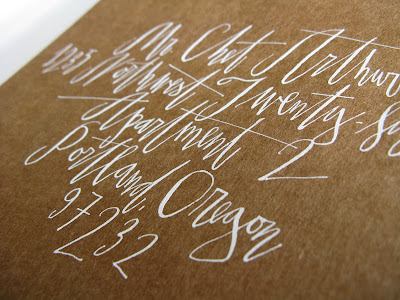 Mr. Chet Arthur
1235 Northwest Twenty-s
Apartment 2
Portland, Oregon
97232